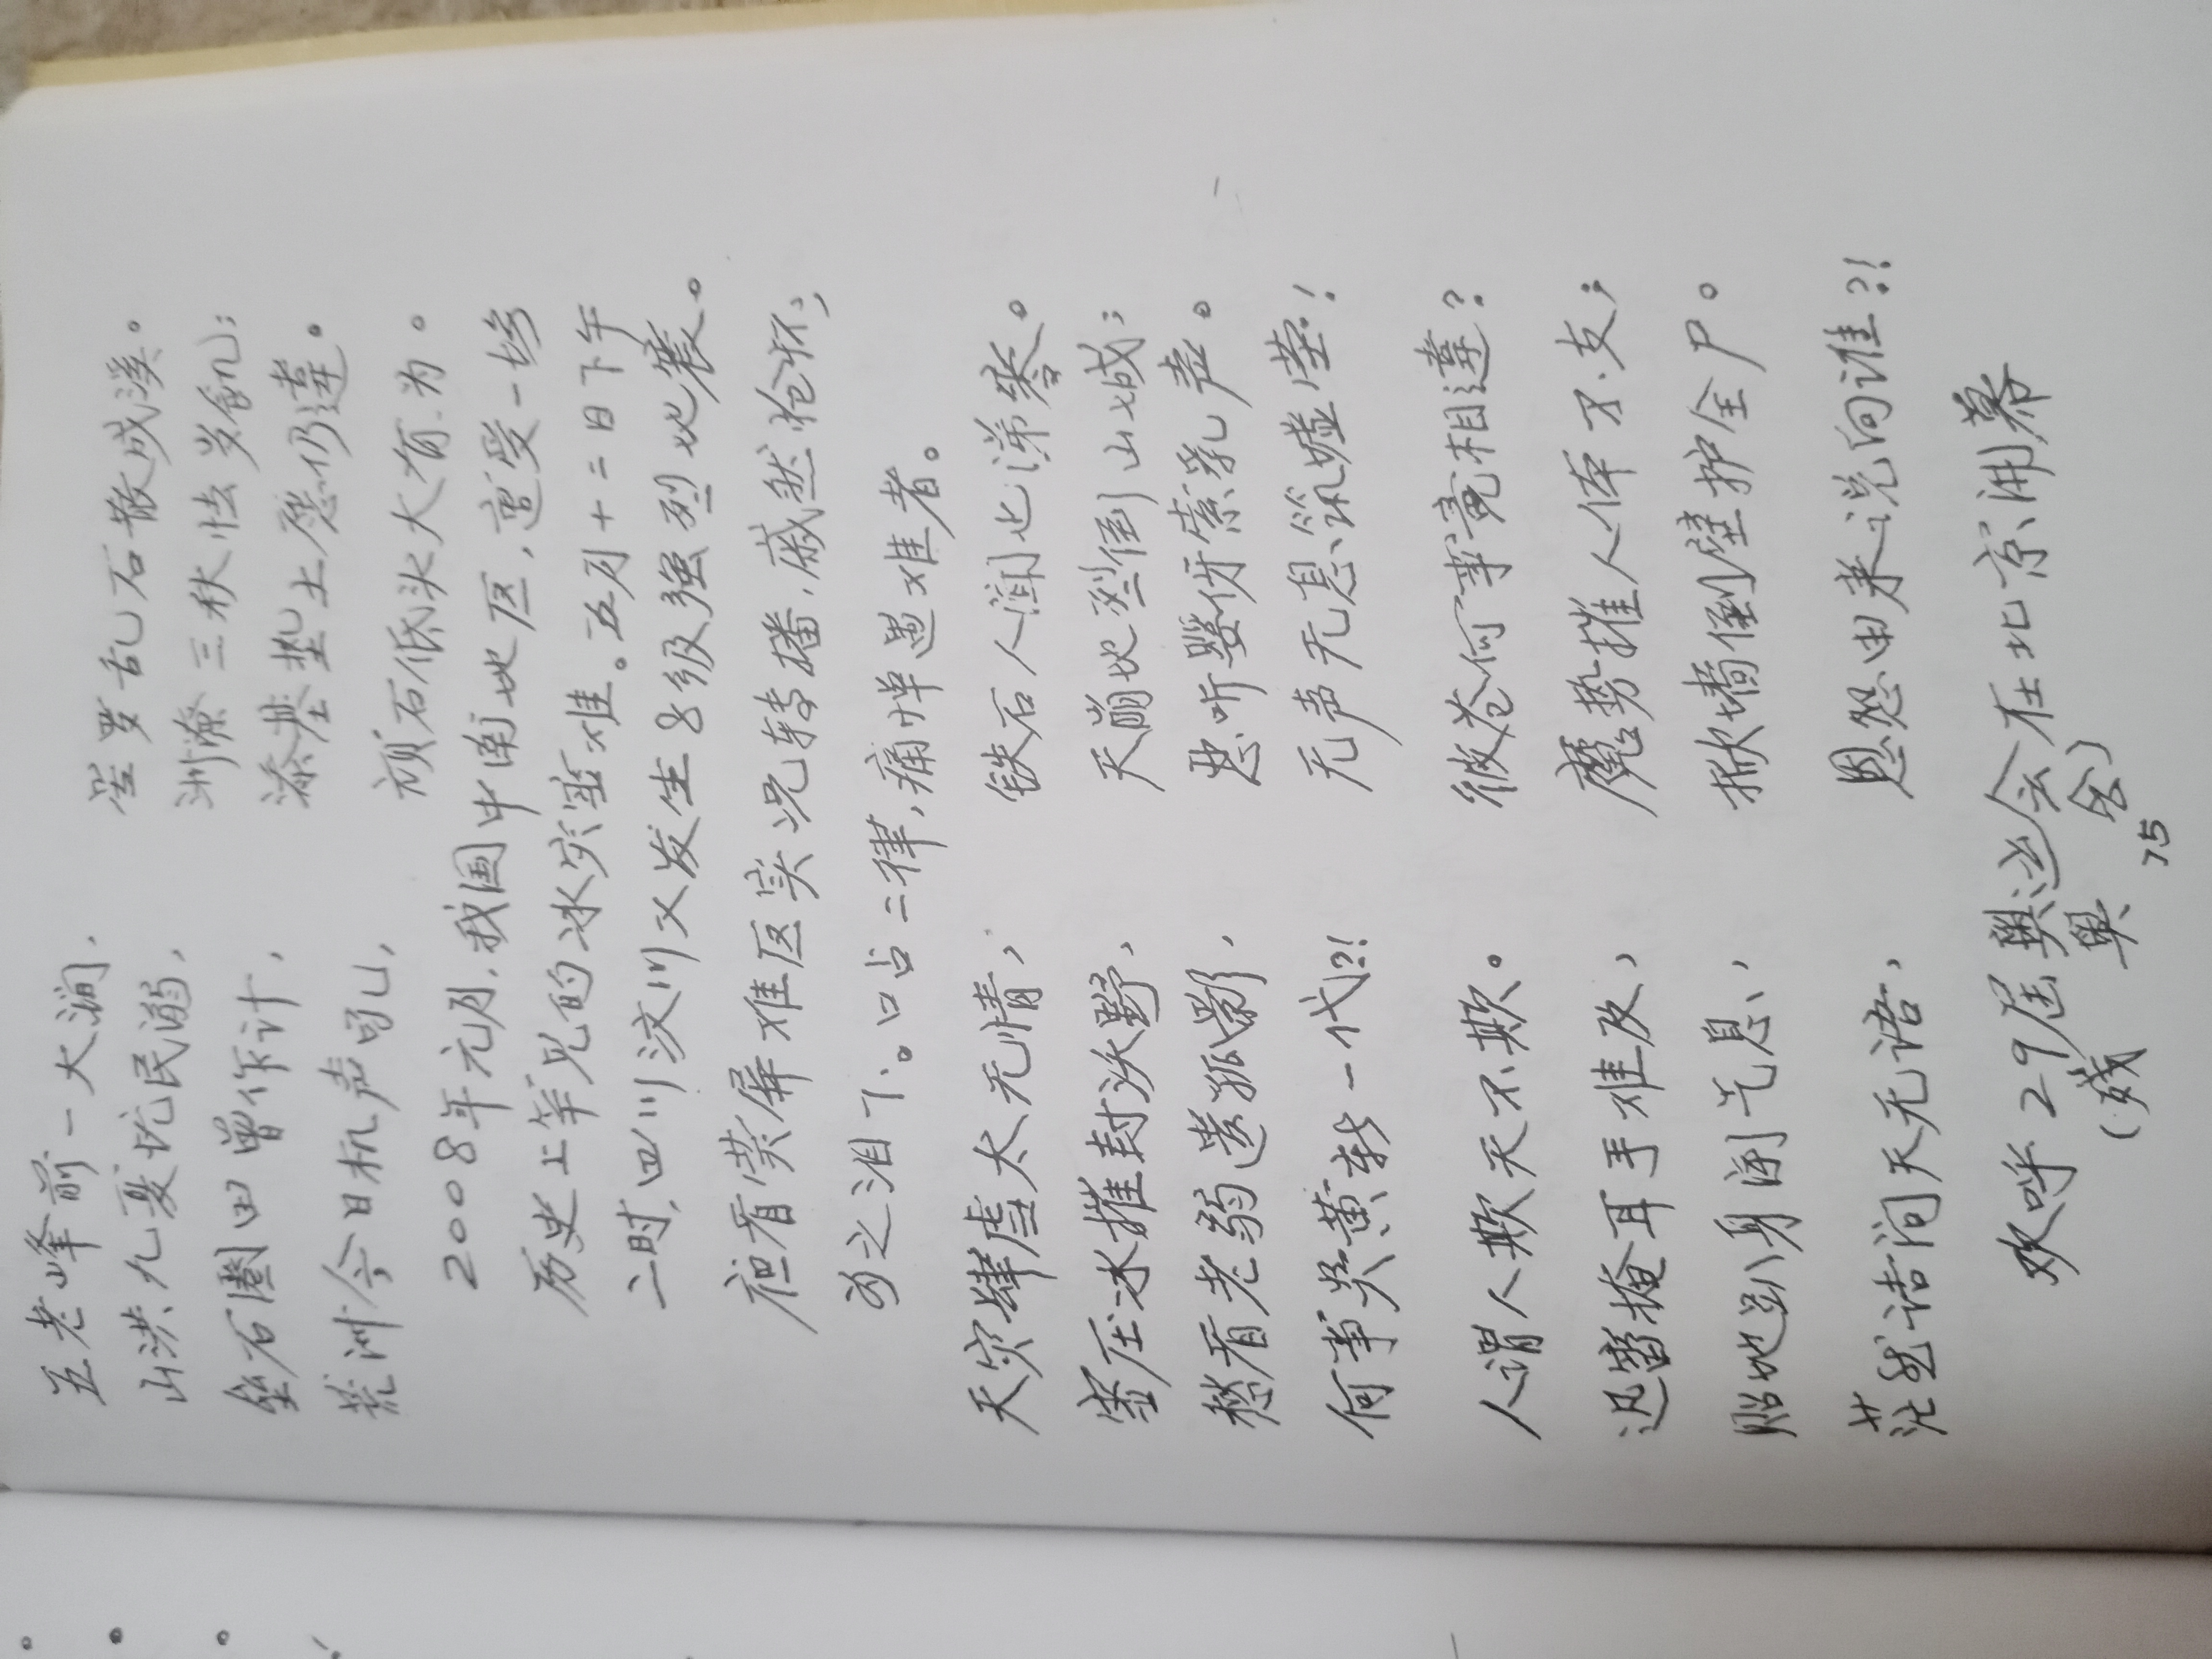 五老峰前一大涧， 星罗乱石散成溪。
山洪九夏忧民溺， 洲潦三秋怯岁飢；
垒石圈田曾作计， 添基垫土愿仍違。
荒洲今日机声叫， 顽石低头大有为。
2008年元月，我国中南地区，遭受一场
历史上罕见的冰灾雪难。五月十二日下午
二时，四川汶川又发生8级强烈地震。
在看荧屏难区实况转播，慽然怆怀，
为之泪下。口占二律，痛悼遇难者。
天灾肆虐太无情， 铁石人闻也涕零。
雪压冰摧封沃野， 天崩地裂倒山城；
愁看老弱遗孤影， 悲听嬰伢索乳声。
何事哭黄我一代?!! 无声无息筑墟茔！
人谓人欺天不欺。 彼苍何事竟相違？
迅雷掩耳手难及， 魔势摧人体不支；
贴地趴身闭气息， 掀墙倒壁护全尸。
茫然诘问天无语， 恩怨由来说向谁?!
欢呼29届奥运会在北京开幕
(残奥会)
75